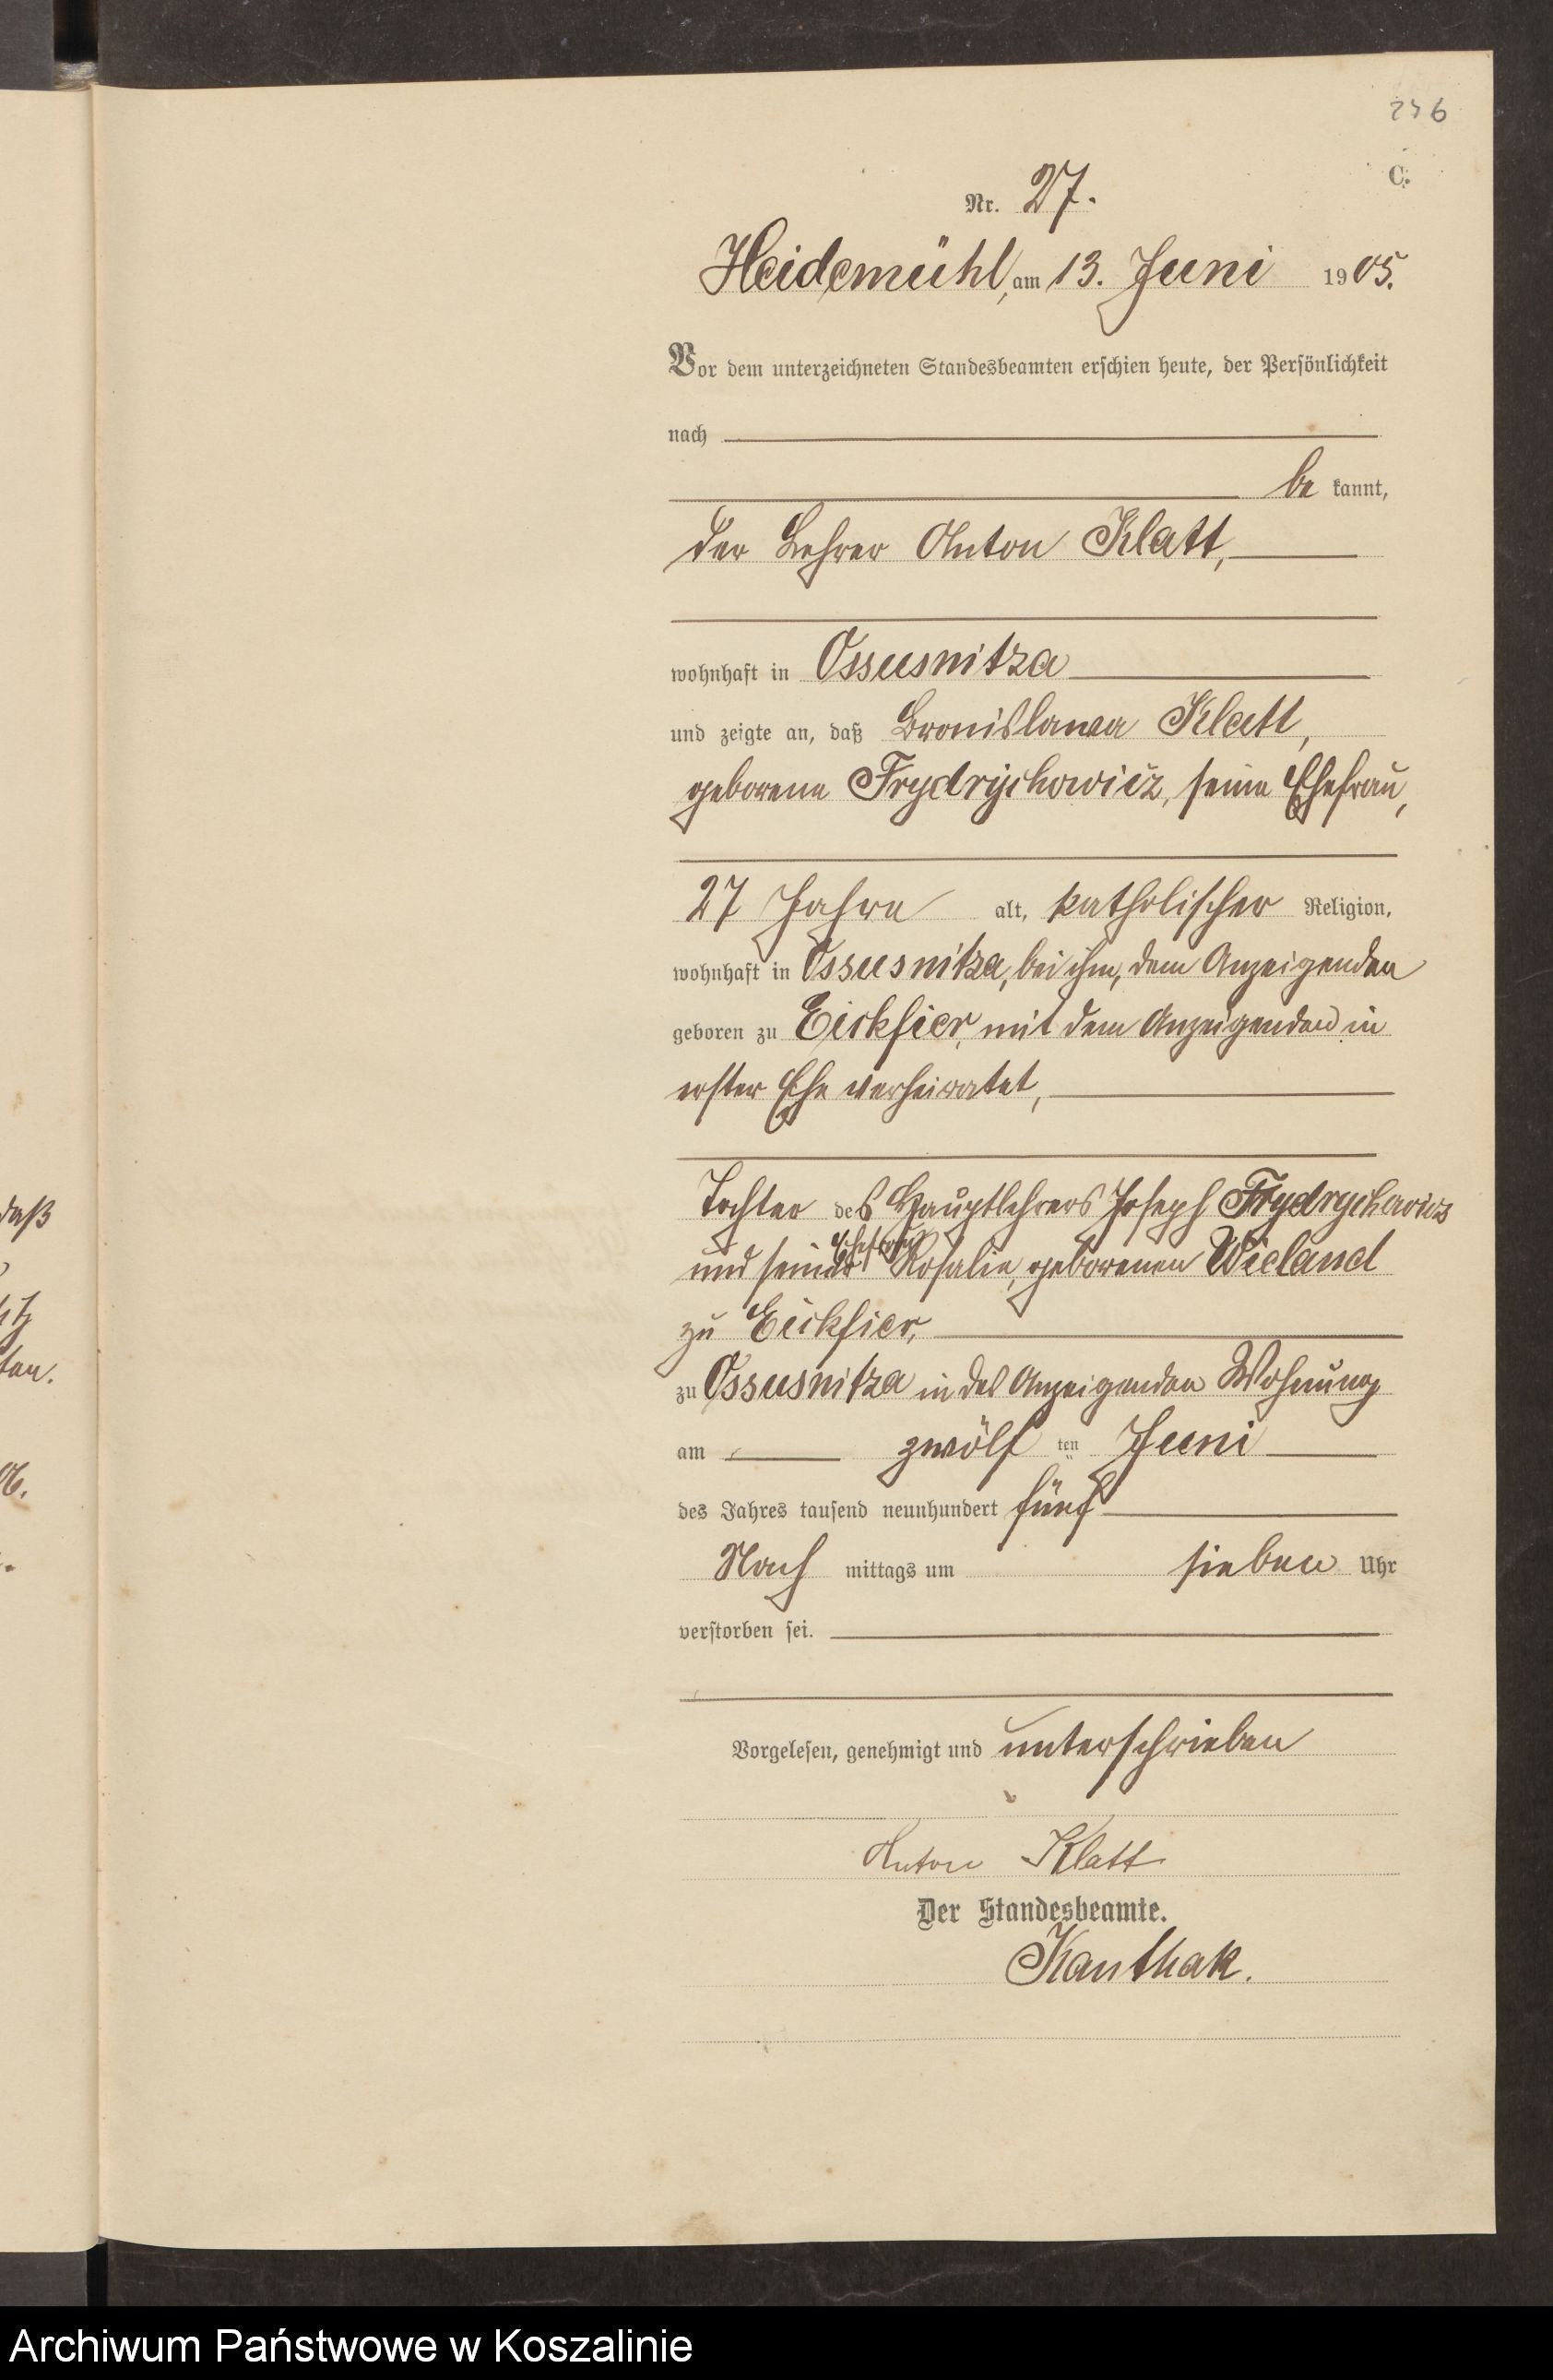 236
C.
Nr. 27.
Heidemühl, am 13. Juni 1905.
Vor dem unterzeichneten Standesbeamten erschien heute, der Persönlichkeit
nach
be kannt,
der Lehrer Anton Klatt,
wohnhaft in Ossusnitza
und zeigte an, daß Bronislawa Klatt,
geborene Frydrychowicz, seine Ehefrau,
27 Jahre alt, katholischer Religion,
wohnhaft in Ossusnitza, bei ihm, dem Anzeigenden
geboren zu Eickfier, mit dem Anzeigenden in
erster Ehe verheiratet,
Tochter des Hauptlehrers Joseph Frydrychowicz
und seiner Ehefrau Rosalie, geborenen Wieland
zu Eickfier,
zu Ossusnitza in des Anzeigenden Wohnung
am zwölf ten Juni
des Jahres tausend neunhundert fünf
Nach mittags um sieben Uhr
verstorben sei.
Vorgelesen, genehmigt und unterschrieben
Anton Klatt
Der Standesbeamte.
Kanthak.
daß
itz
ten.
Archiwum Państwowe w Koszalinie